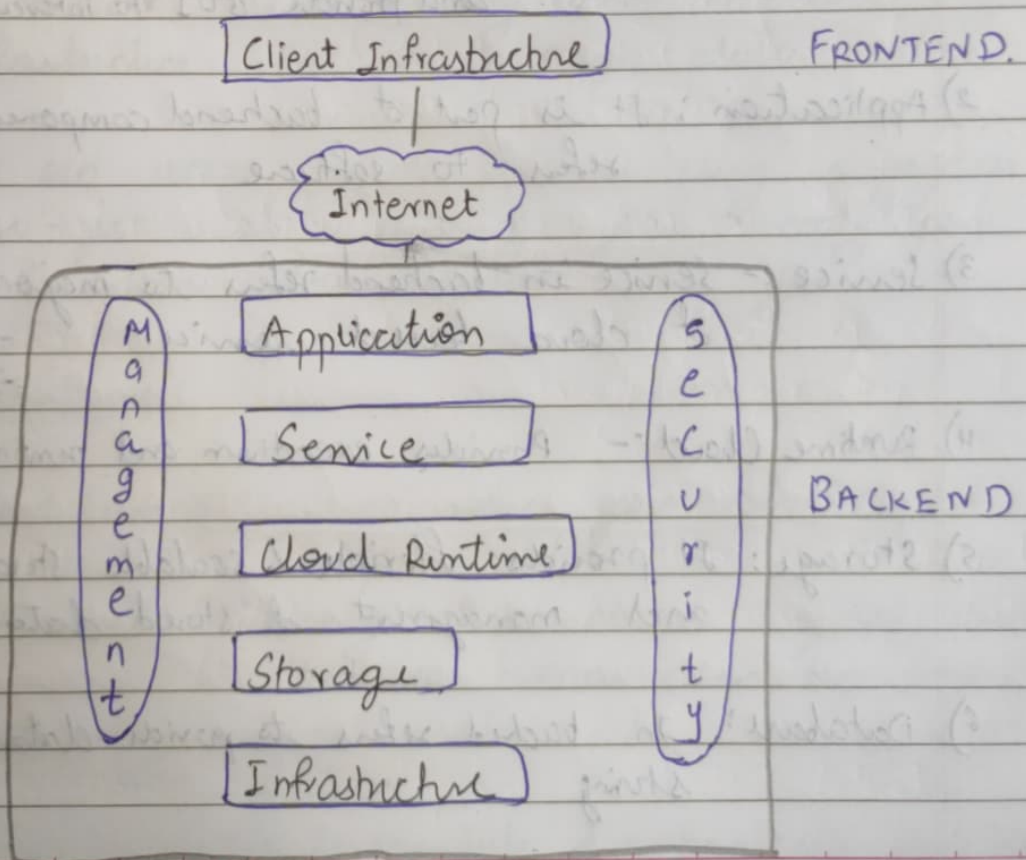 Client Infrastructure
FRONTEND.
Internet
Management
Application
Service
Cloud Runtime
Storage
Infrastructure
Security
BACKEND